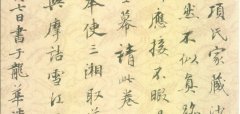 項氏家藏
然不似真跡
應接不暇
慕請此卷
本使三湘取
與摩詰雪江
七日書于龍華